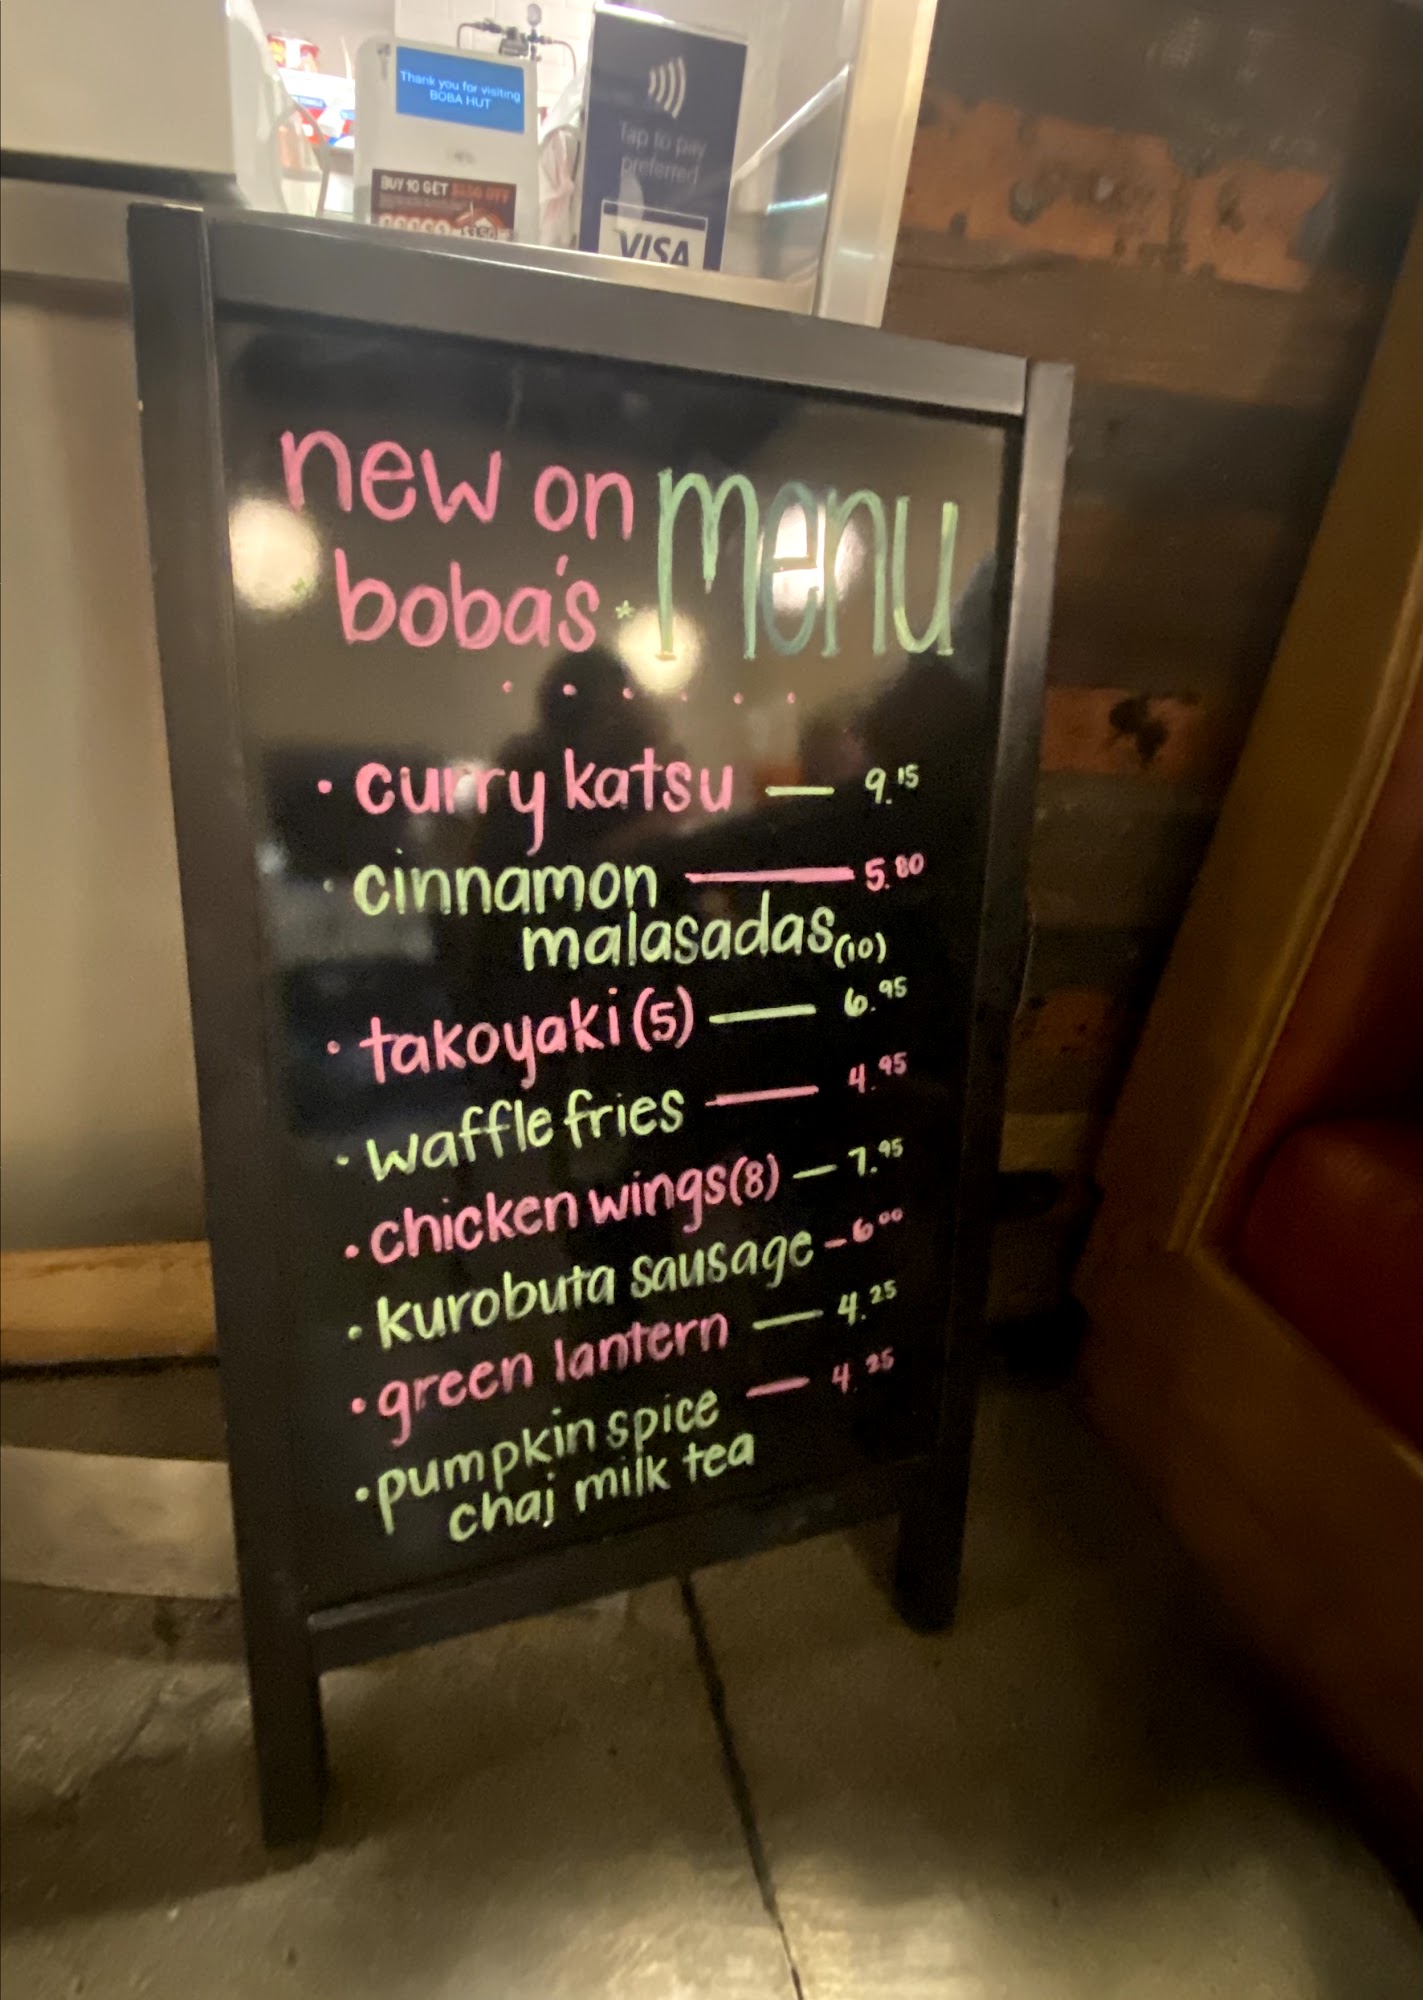 Thank you for visiting
BOBA HUT
Tap to pay
preferred
BUY 10 GET $3.50 OFF
$3.50
VISA
new on menu
boba's
• curry katsu — 9.15
• cinnamon — 5.80
malasadas (10)
• takoyaki (5) — 6.95
• waffle fries — 4.95
• chicken wings (8) — 7.95
• kurobuta sausage — 6.00
• green lantern — 4.25
• pumpkin spice — 4.25
chai milk tea